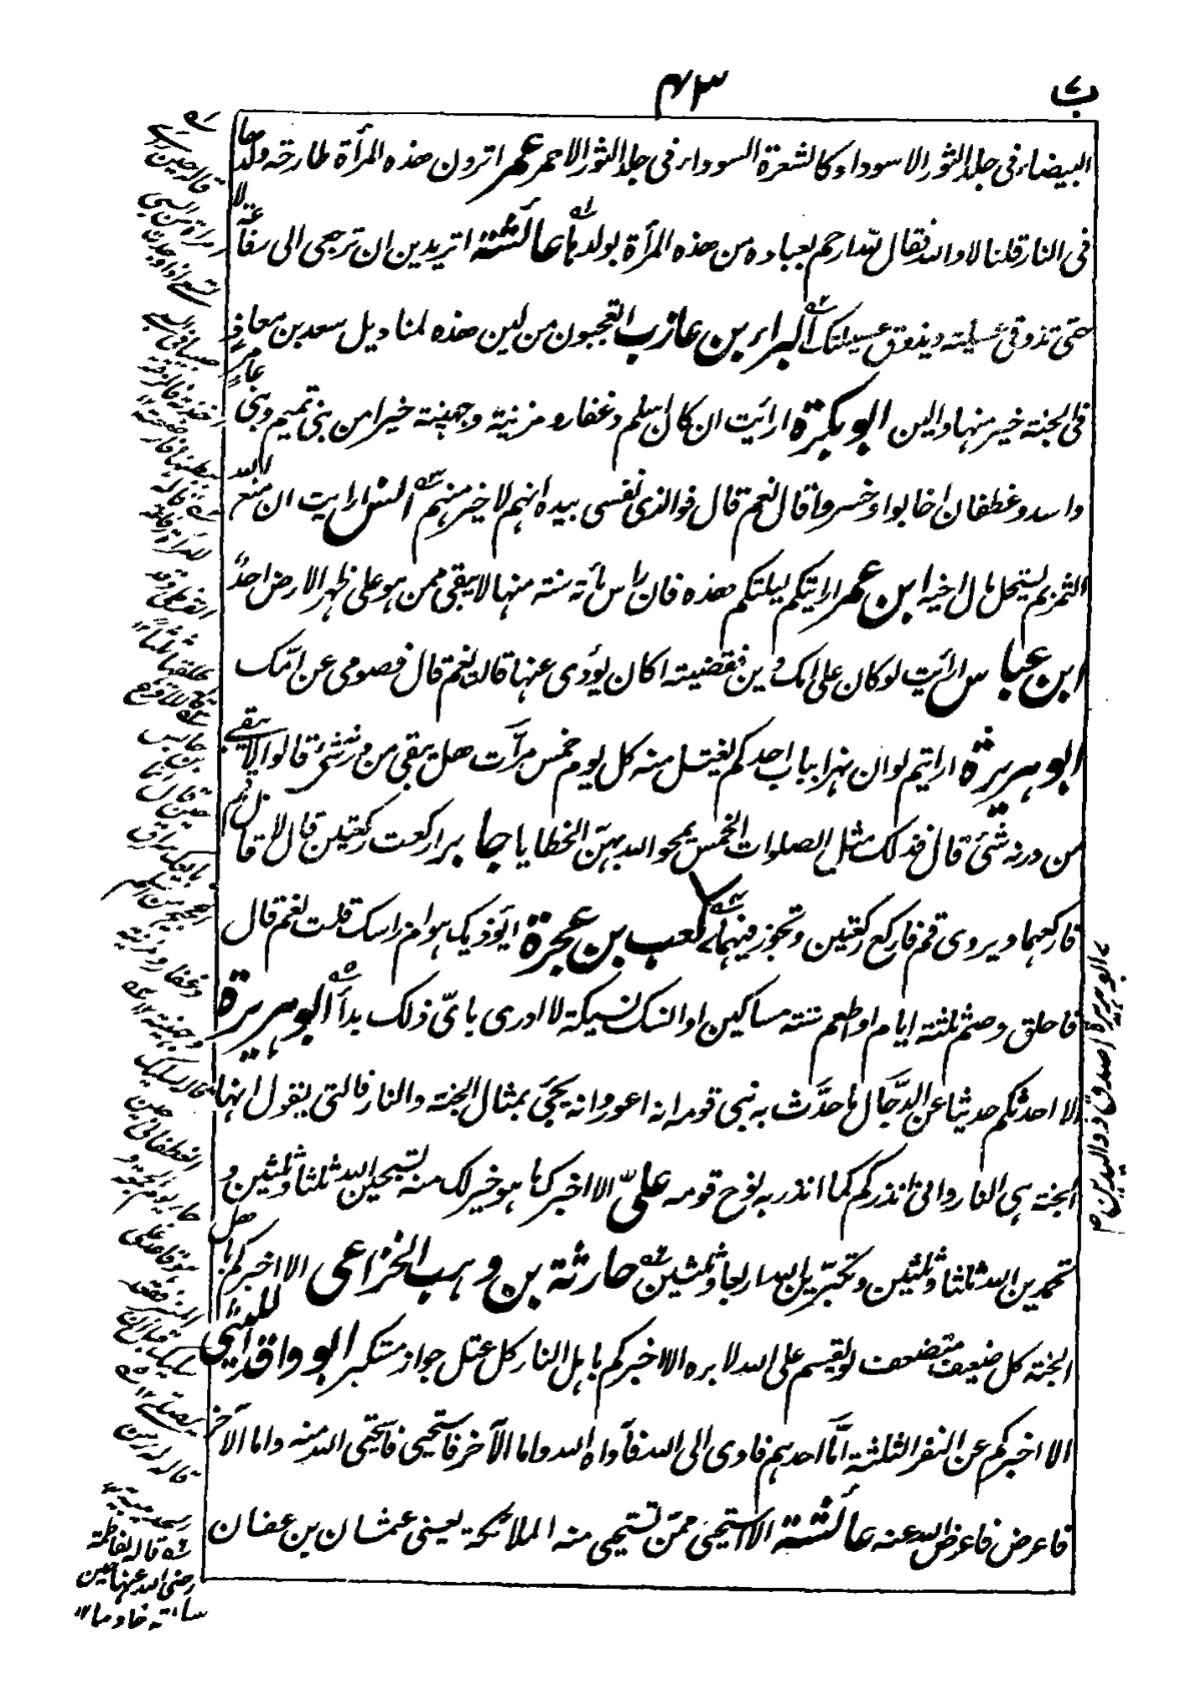 ب
٤٣
البيضاء فى جلد الثور الاسود او كالشعرة السوداء فى جلد الثور الاحمر عمر اترون هذه المرأة طارحة ولدها
فى النار قلنا لا والله فقال لله ارحم بعباده من هذه المرأة بولدها عائشة اتريدين ان ترجعى الى رفاعة لا
حتى تذوقى عسيلته ويذوق عسيلتك البراء بن عازب اتعجبون من لين هذه لمناديل سعد بن معاذ
فى الجنة خير منها والين ابو بكرة ارأيت ان كان اسلم وغفار ومزينة وجهينة خيرا من بنى تميم وبنى عامر
واسد وغطفان اخابوا وخسروا قال نعم قال فوالذى نفسى بيده انهم لاخير منهم انس ارايت ان منع الله
الثمر بم يستحل مال اخيه ابن عمر ارايتكم ليلتكم هذه فان راس مائة سنة منها لا يبقى ممن هو على ظهر الارض احد
ابن عباس ارأيت لو كان على امك دين فقضيته اكان يؤدى عنها قالت نعم قال فصومى عن امك
ابو هريرة ارايتم لو ان نهرا بباب احدكم يغتسل منه كل يوم خمس مرات هل يبقى من درنه شئ قالوا لا يبقى
من درنه شئ قال فذلك مثل الصلوات الخمس يمحو الله بهن الخطايا جابر اركعت ركعتين قال لا قال قم
فاركعهما ويروى قم فاركع ركعتين وتجوز فيهما كعب بن عجرة ايؤذيك هوام راسك قلت نعم قال
فاحلق وصم ثلثة ايام او اطعم ستة مساكين او انسك نسيكة لا ادرى باى ذلك بدأ ابو هريرة
الا احدثكم حديثا عن الدجال ما حدث به نبى قومه انه اعور وانه يجئ بمثال الجنة والنار فالتى يقول انها
الجنة هى النار وانى انذركم كما انذر به نوح قومه على الا اخبركما هو خير لك منه تسبحين الله ثلثا وثلثين و
تحمدين الله ثلثا وثلثين وتكبرين الله اربعا وثلثين حارثة بن وهب الخزاعى الا اخبركم باهل
الجنة كل ضعيف متضعف لو يقسم على الله لابره الا اخبركم باهل النار كل عتل جواز مستكبر ابو واقد الليثى
الا اخبركم عن النفر الثلثة اما احدهم فاوى الى الله فآواه الله واما الآخر فاستحيى فاستحيى الله منه واما الآخر
فاعرض فاعرض الله عنه عائشة الا استحيى ممن تستحيى منه الملائكة يعنى عثمان بن عفان
قاله حين راى
امراة من السبى
جابر بن
وغفار ومزينة
وجهينة ١٢
قاله لسليك
الغطفانى حين
جاء يوم الجمعة و
هو قاعد على
المنبر فقعد
سليك قبل ان
يصلى ١٢
قاله لفاطمة
رضى الله عنها حين
سألته خادما ١٢
ابو هريرة اصدق ذو اليدين